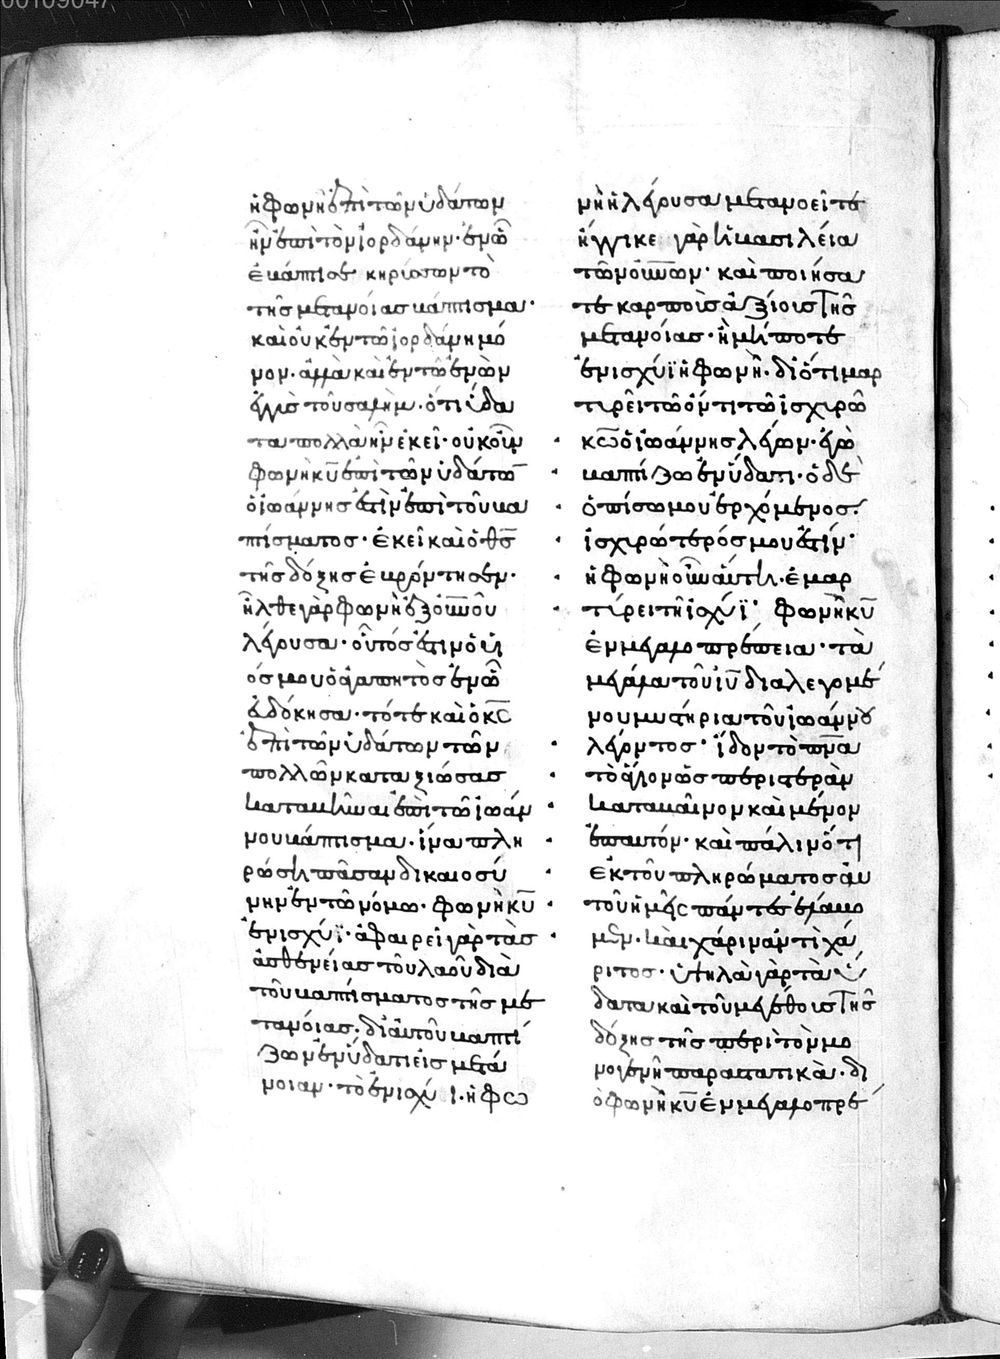 00109047
ἡ φωνὴ ἐπὶ τῶν ὑδάτων
ἦν ἐπὶ τὸν ἰορδάνην· ἐν ὧ
ἐβάπτισε κηρύσσων τὸ
τῆς μετανοίας βάπτισμα·
καὶ οὐκ ἐν τῶ ἰορδάνη μό
νον· ἀλλὰ καὶ ἐν τῶ ἐνὼν
ἐγγὺς τοῦ σαλὴμ· ὅτι ὕδα
τα πολλὰ ἦν ἐκεῖ· οὐκοῦν
φωνὴ κυ ἐπὶ τῶν ὑδάτω
ὁ ἰωάννης ἐστὶν ἐπὶ τοῦ βα
πτίσματος· ἐκεῖ καὶ ὁ θς
τῆς δόξης ἐβρόντησεν·
ἦλθε γὰρ φωνὴ ἐξ οὐνοῦ
λέγουσα· οὗτός ἐστιν ὁ υἱ
ός μου ὁ ἀγαπητὸς ἐν ὧ
εὐδόκησα· τότε καὶ ὁ κς
ἐπὶ τῶν ὑδάτων τῶν
πολλῶν καταξιώσας
καταβῆναι ἐπὶ τῶ ἰωάν
νου βάπτισμα· ἵνα πλη
ρώση πᾶσαν δικαιοσύ
νην ἐν τῶ νόμω· φωνὴ κυ
ἐν ισχύϊ· ἀφαιρεῖ γὰρ τὰς
ἀσθενείας τοῦ λαοῦ διὰ
τοῦ βαπτίσματος τῆς με
τανοίας· δι' αὐτοῦ βαπτί
ζων ἐν ὕδατι εἰς μετά
νοιαν· τὸ ἐν ισχύϊ· ἡ φω
νὴ ἡ λέγουσα μετανοεῖτε
ἤγγικε γὰρ ἡ βασιλεία
τῶν οὐνῶν· καὶ ποιήσα
τε καρποὺς ἀξίους τῆς
μετανοίας· ἢ μήποτε
ἐν ισχύϊ ἡ φωνὴ· διότι μαρ
τυρεῖ τῶ ὄντι τῶ ἰσχυρῶ
κω ὁ ἰωάννης λέγων· ἐγὼ
βαπτίζω ἐν ὕδατι· ὁ δὲ
ὀπίσω μου ἐρχόμενος·
ἰσχυρότερός μου ἐστίν·
ἡ φωνὴ οὖν αὐτὴ· ἐμαρ
τύρει τῆ ἰσχύϊ· φωνὴ κυ
ἐν μεγαλοπρέπεια· τὰ
μεγάλα τοῦ ιυ διαλεγομέ
νου μυστήρια τοῦ ἰωάννου
λέγοντος· ἴδον τὸ πνα
τὸ ἅγιον ὡς περιστερὰν
καταβαῖνον καὶ μένον
ἐπ αυτόν· καὶ πάλιν ὅτι
ἐκ τοῦ πληρώματος αὐ
τοῦ ἡμεῖς πάντες ἐλάβο
μεν· καὶ χάριν ἀντὶ χά
ριτος· ὑψηλὰ γὰρ τὰ ὕ
δατα καὶ τοῦ μεγέθους τῆς
δόξης τῆς περὶ τὸν μο
νογενῆ παραστατικὰ· δι
ὸ φωνὴ κυ ἐν μεγαλοπρε